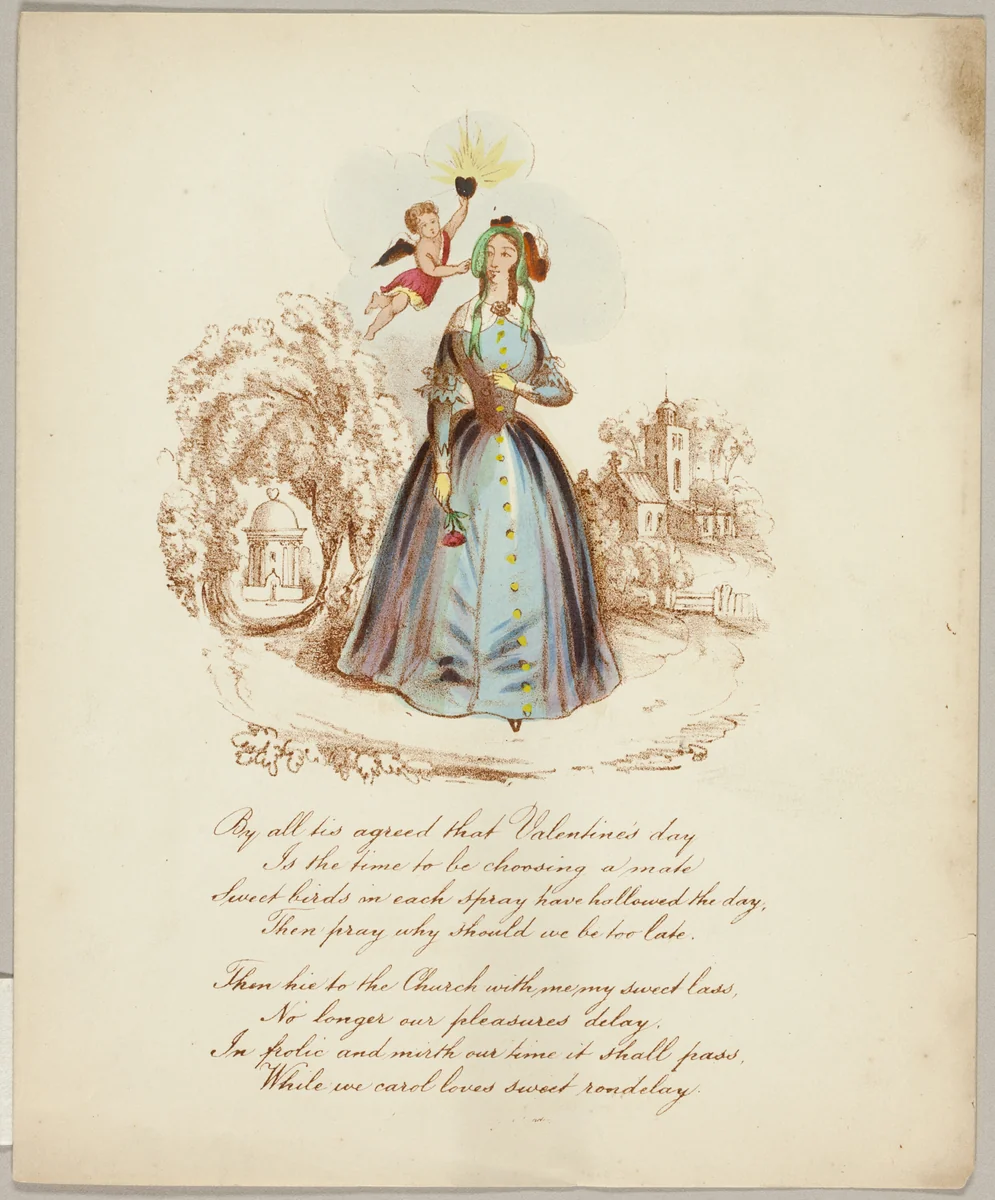 By all tis agreed that Valentine's day
Is the time to be choosing a mate
Sweet birds in each spray have hallowed the day,
Then pray why should we be too late.
Then hie to the Church with me, my sweet lass,
No longer our pleasures delay.
In frolic and mirth our time it shall pass,
While we carol loves sweet rondelay.